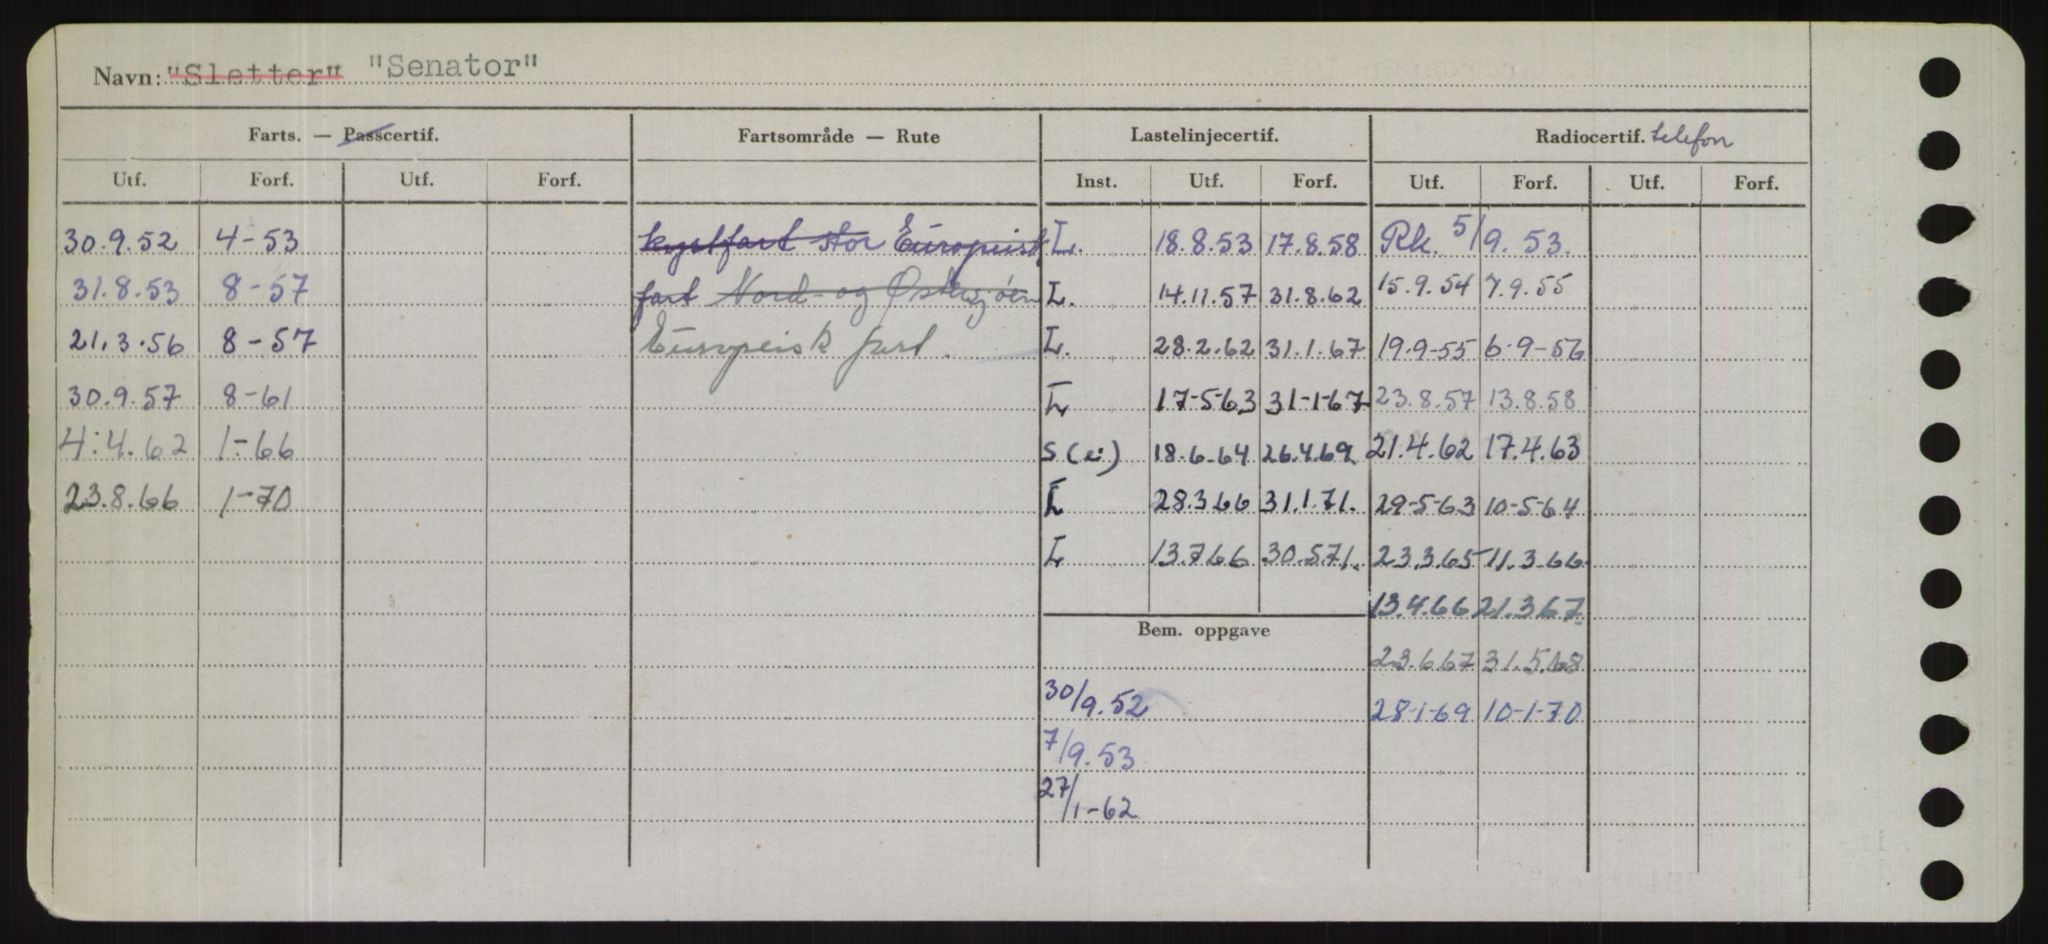 Navn: "Sletter" "Senator"
Farts. — Passcertif. Fartsområde — Rute Lastelinjecertif. Radiocertif. telefon
Utf. Forf. Utf. Forf. Inst. Utf. Forf. Utf. Forf. Utf. Forf.
30.9.52 4-53 kystfart stor Europeisk L. 18.8.53 17.8.58 Rk. 5/9.53.
31.8.53 8-57 fart Nord- og Østersjøen L. 14.11.57 31.8.62 15.9.54 7.9.55
21.3.56 8-57 Europeisk fart. L. 28.2.62 31.1.67 19.9-55 6-9-56
30.9.57 8-61 L 17-5-63 31-1-67 23.8.57 13.8.58
4.4.62 1-66 S (e:) 18.6.64 26.4.69 21.4.62 17.4.63
23.8.66 1-70 L 28.3.66 31.1.71. 29-5-63 10-5-64
L 13.7.66 30.5.71. 23.3.65 11.3.66
13.4.66 21.3.67
Bem. oppgave
23.6.67 31.5.68
30/9.52 28-1-69 10-1-70
7/9.53
27/1-62